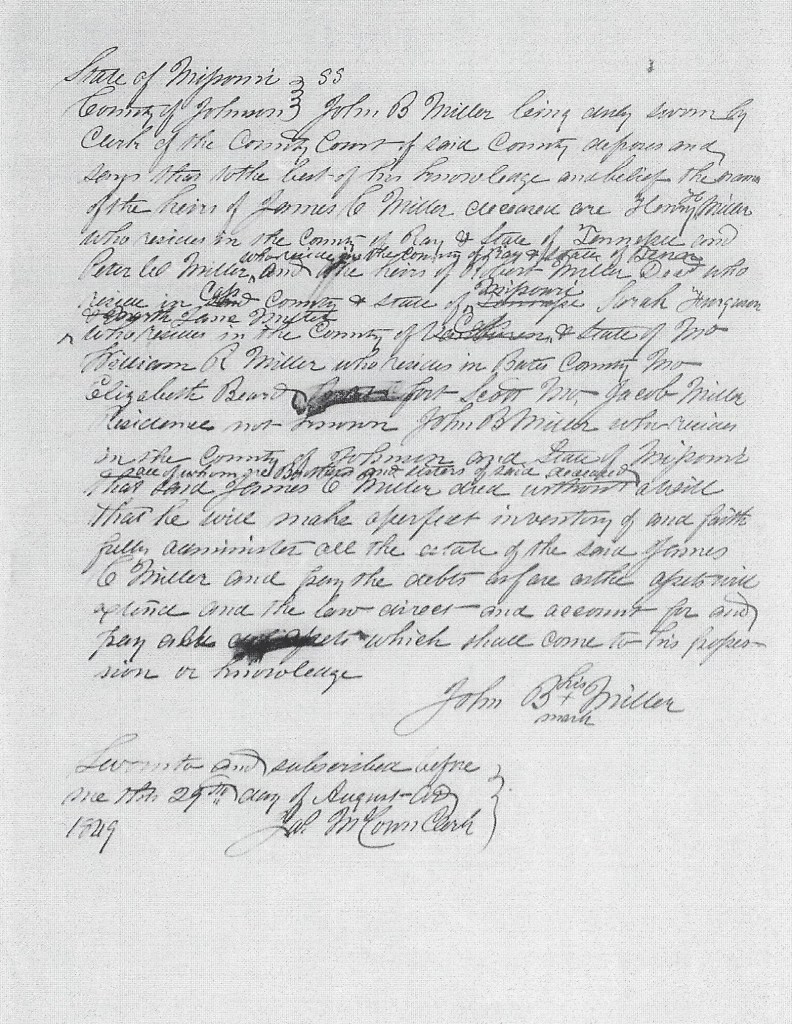 State of Missouri } SS
County of Johnson } John B Miller being duly sworn by
Clerk of the County Court of said County deposes and
says that to the best of his knowledge and belief the names
of the heirs of James C Miller deceased are Henry Miller
who resides in the County of Ray & State of Tennessee and
who reside in the County of Ray & State of
Peter Miller and the heirs of Robert Miller Dead who
Missouri
reside in County & State of Sarah Furguson
who resides in the County of & State of Mo
William R Miller who resides in Bates County Mo
Elizabeth Beard fort Scott Mo, Jacob Miller
Residence not known John B Miller who resides
in the County of Johnson and State of Missouri
all of whom are Brothers and sisters of said deceased
that said James C Miller died without a will
that he will make a perfect inventory of and faith
fully administer all the estate of the said James
C Miller and pay the debts as far as the assets will
extend and the law direct and account for and
pay all assets which shall come to his posses-
sion or knowledge
his
John B + Miller
mark
Sworn to and subscribed before
me this 29th day of August AD
1849 Jas. McCown Clerk